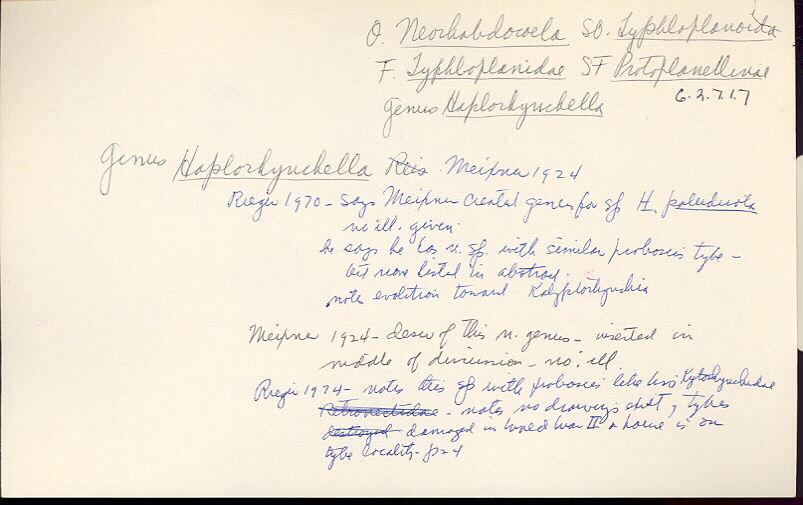 O. Neorhabdocoela SO. Typhloplanoida
F. Typhloplanidae SF Protoplanellinae
genus Haplorhynchella 6.2.7.1.7
Genus Haplorhynchella Reis. Meixner 1924
Rieger 1970 - says Meixner created genus for sp H. paludicola
no ill. given.
he says he has n. sp. with similar proboscis type -
but none listed in abstract.
notes evolution toward Kalyptorhynchia
Meixner 1924 - descr of this n. genus - inserted in
middle of discussion - no ill.
Rieger 1974 - notes this sp with proboscis like his Kytorhynchidae
Retronectidae - notes no drawings exist, types
destroyed damaged in World War II & house is on
type locality - p24